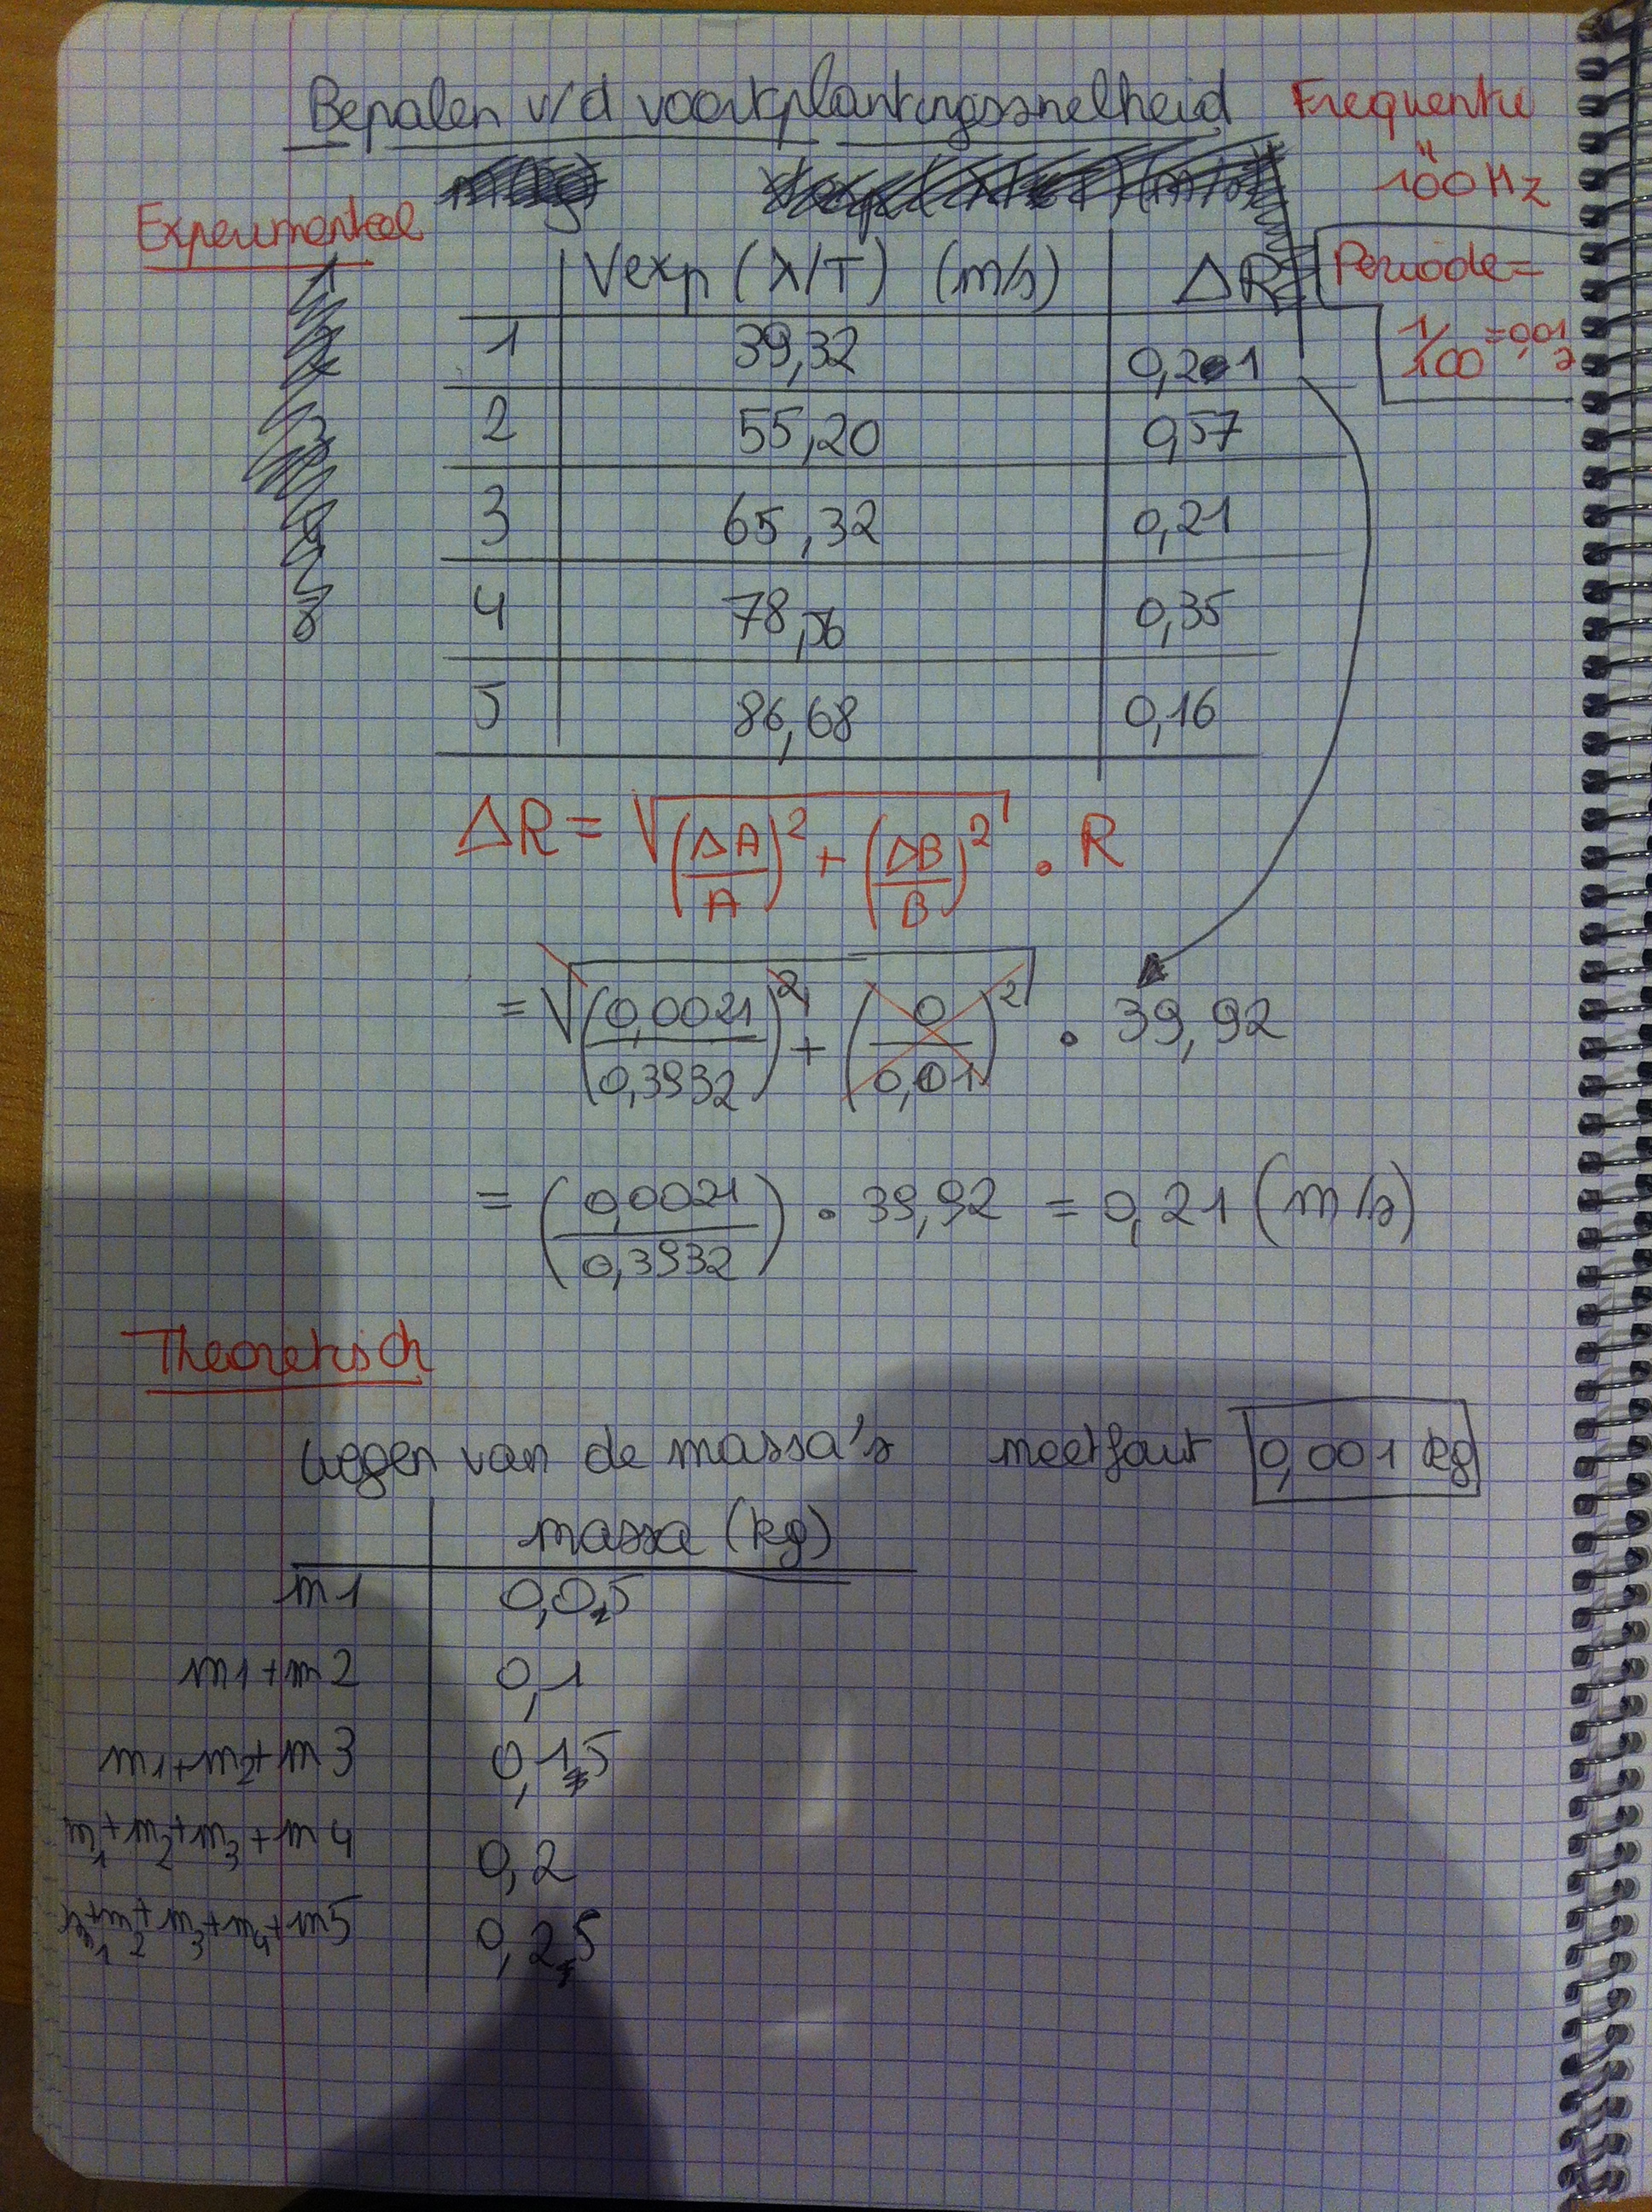 Bepalen v/d voortplantingssnelheid
Frequentie
"
100 Hz
Experimenteel
Vexp (λ/T) (m/s) ΔR
Periode =
1/100 = 0,01 s
1 39,32 0,21
2 55,20 0,57
3 65,32 0,21
4 78,56 0,35
5 86,68 0,16
ΔR = √((ΔA/A)² + (ΔB/B)²) · R
= √((0,0021/0,3932)² + (0/0,01)²) · 39,92
= (0,0021/0,3932) · 39,92 = 0,21 (m/s)
Theoretisch
wegen van de massa's meetfout 0,001 kg
massa (kg)
m1 0,05
m1+m2 0,1
m1+m2+m3 0,15
m1+m2+m3+m4 0,2
m1+m2+m3+m4+m5 0,25